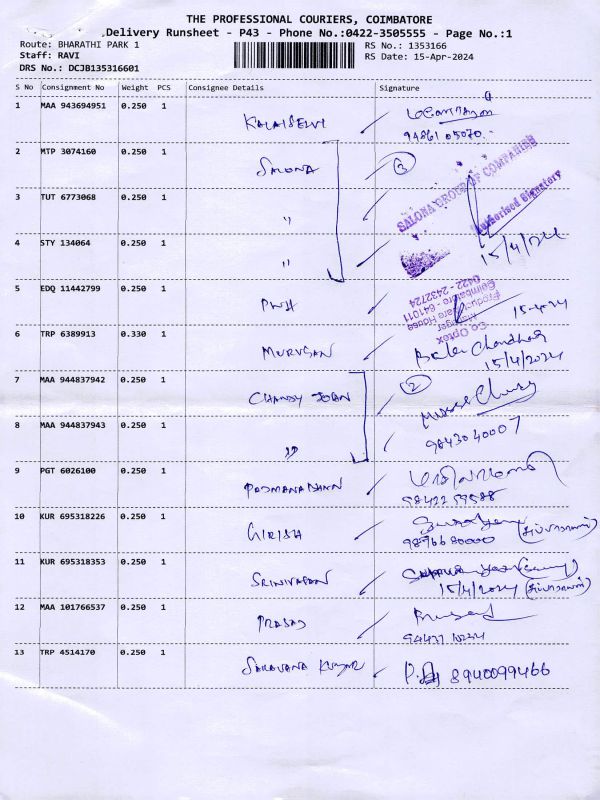 THE PROFESSIONAL COURIERS, COIMBATORE
Delivery Runsheet - P43 - Phone No.:0422-3505555 - Page No.:1
Route: BHARATHI PARK 1 RS No.: 1353166
Staff: RAVI RS Date: 15-Apr-2024
DRS No.: DCJB135316601
S No Consignment No Weight PCS Consignee Details Signature
1 MAA 943694951 0.250 1 KALAISELVI
9486105070
2 MTP 3074160 0.250 1 SALONA 3
SALONA GROUP OF COMPANIES
3 TUT 6773068 0.250 1 "
Authorised Signatory
4 STY 134064 0.250 1 "
15/4/2024
5 EDQ 11442799 0.250 1 PWH 15-4-24
Co Optex
Manager
House
Coimbatore - 641011
0422 - 2432724
6 TRP 6389913 0.330 1 MURUGAN Bala Chandhar
15/4/2024
7 MAA 944837942 0.250 1 CHANDY JOHN 2
8 MAA 944837943 0.250 1 "
9843040007
9 PGT 6026100 0.250 1 PADMANABHAN
9842259588
10 KUR 695318226 0.250 1 GIRISH
9876680000
11 KUR 695318353 0.250 1 SRINIVASAN
15/4/2024
12 MAA 101766537 0.250 1 PRASAD Prasad
13 TRP 4514170 0.250 1 SARAVANA KUMAR 8940099466